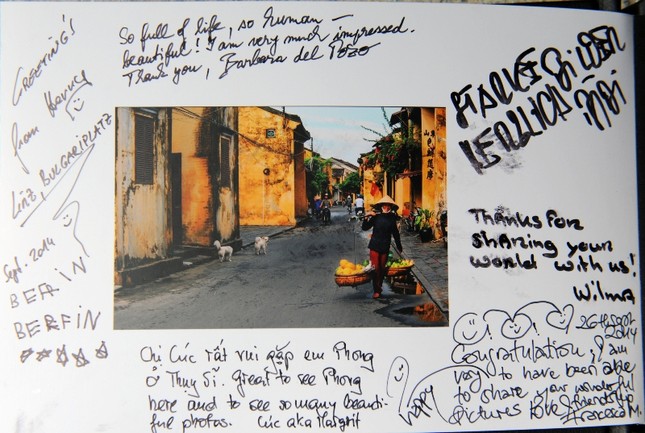 GREETING'S
from
LINZ, BULGARIPLATZ
Sept. 2014
BERIN
BERFIN
So full of life, so human –
beautiful! I am very much impressed.
Thank you, Barbara del Pozo
Thanks for
sharing your
world with us!
Wilma
Chị Cúc rất vui gặp em Phong
ở Thụy Sĩ. Great to see Phong
here and to see so many beauti-
ful photos. Cúc aka Margrit
Happy
26th Sept
2014
Congratulation, I am
very to have been able
to share your wonderful
pictures love & friendship
Francesca M.